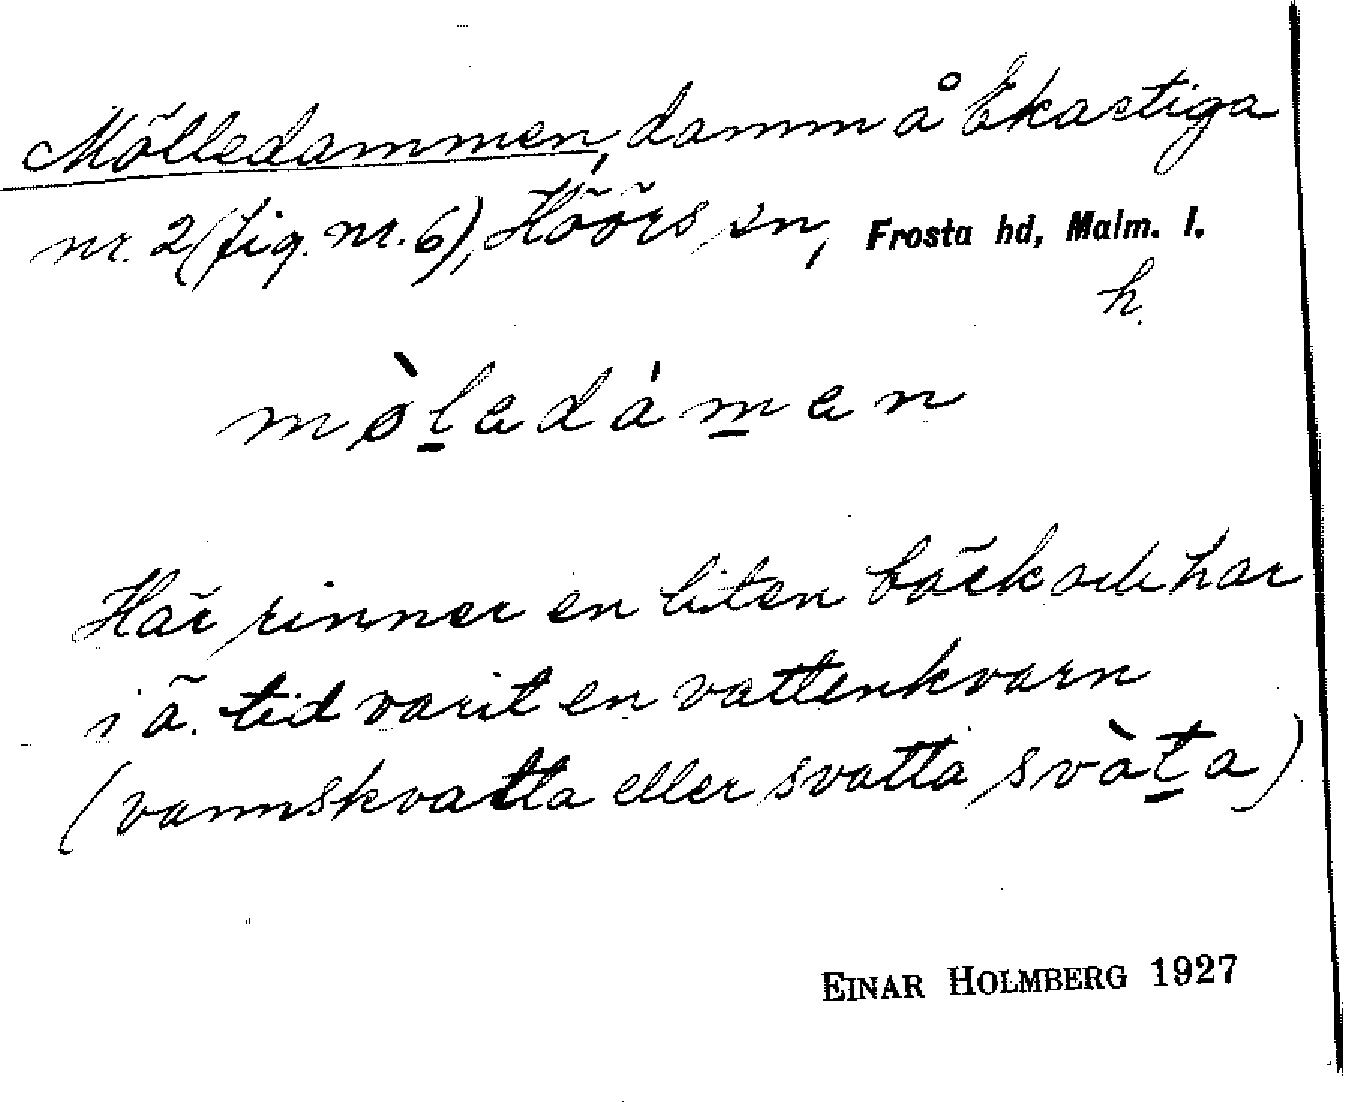 Mölledammen, damm å Ekastiga
nr. 2 (fig. nr. 6), Höörs sn, Frosta hd, Malm. l.
h.
mø̀l̠edám̠en
Här rinner en liten bäck och har
i ä. tid varit en vattenkvarn
(vannskvatta eller svatta, svàt̠a)
EINAR HOLMBERG 1927